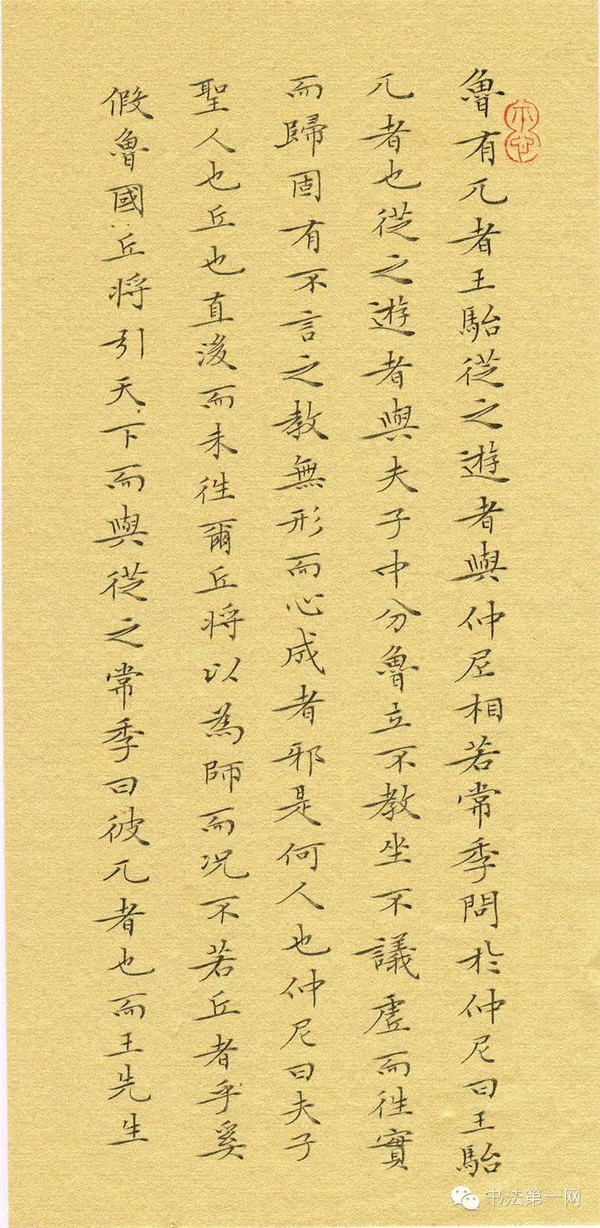 魯有兀者王駘從之遊者與仲尼相若常季問於仲尼曰王駘
兀者也從之遊者與夫子中分魯立不教坐不議虛而往實
而歸固有不言之教無形而心成者邪是何人也仲尼曰夫子
聖人也丘也直後而未往爾丘將以為師而況不若丘者乎奚
假魯國丘將引天下而與從之常季曰彼兀者也而王先生
书法第一网